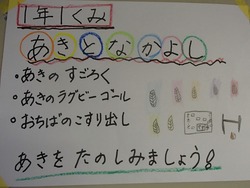 1年1くみ
あきとなかよし
・あきの すごろく
・あきのラグビーゴール
・おちばのこすり出し
あきを たのしみましょう！